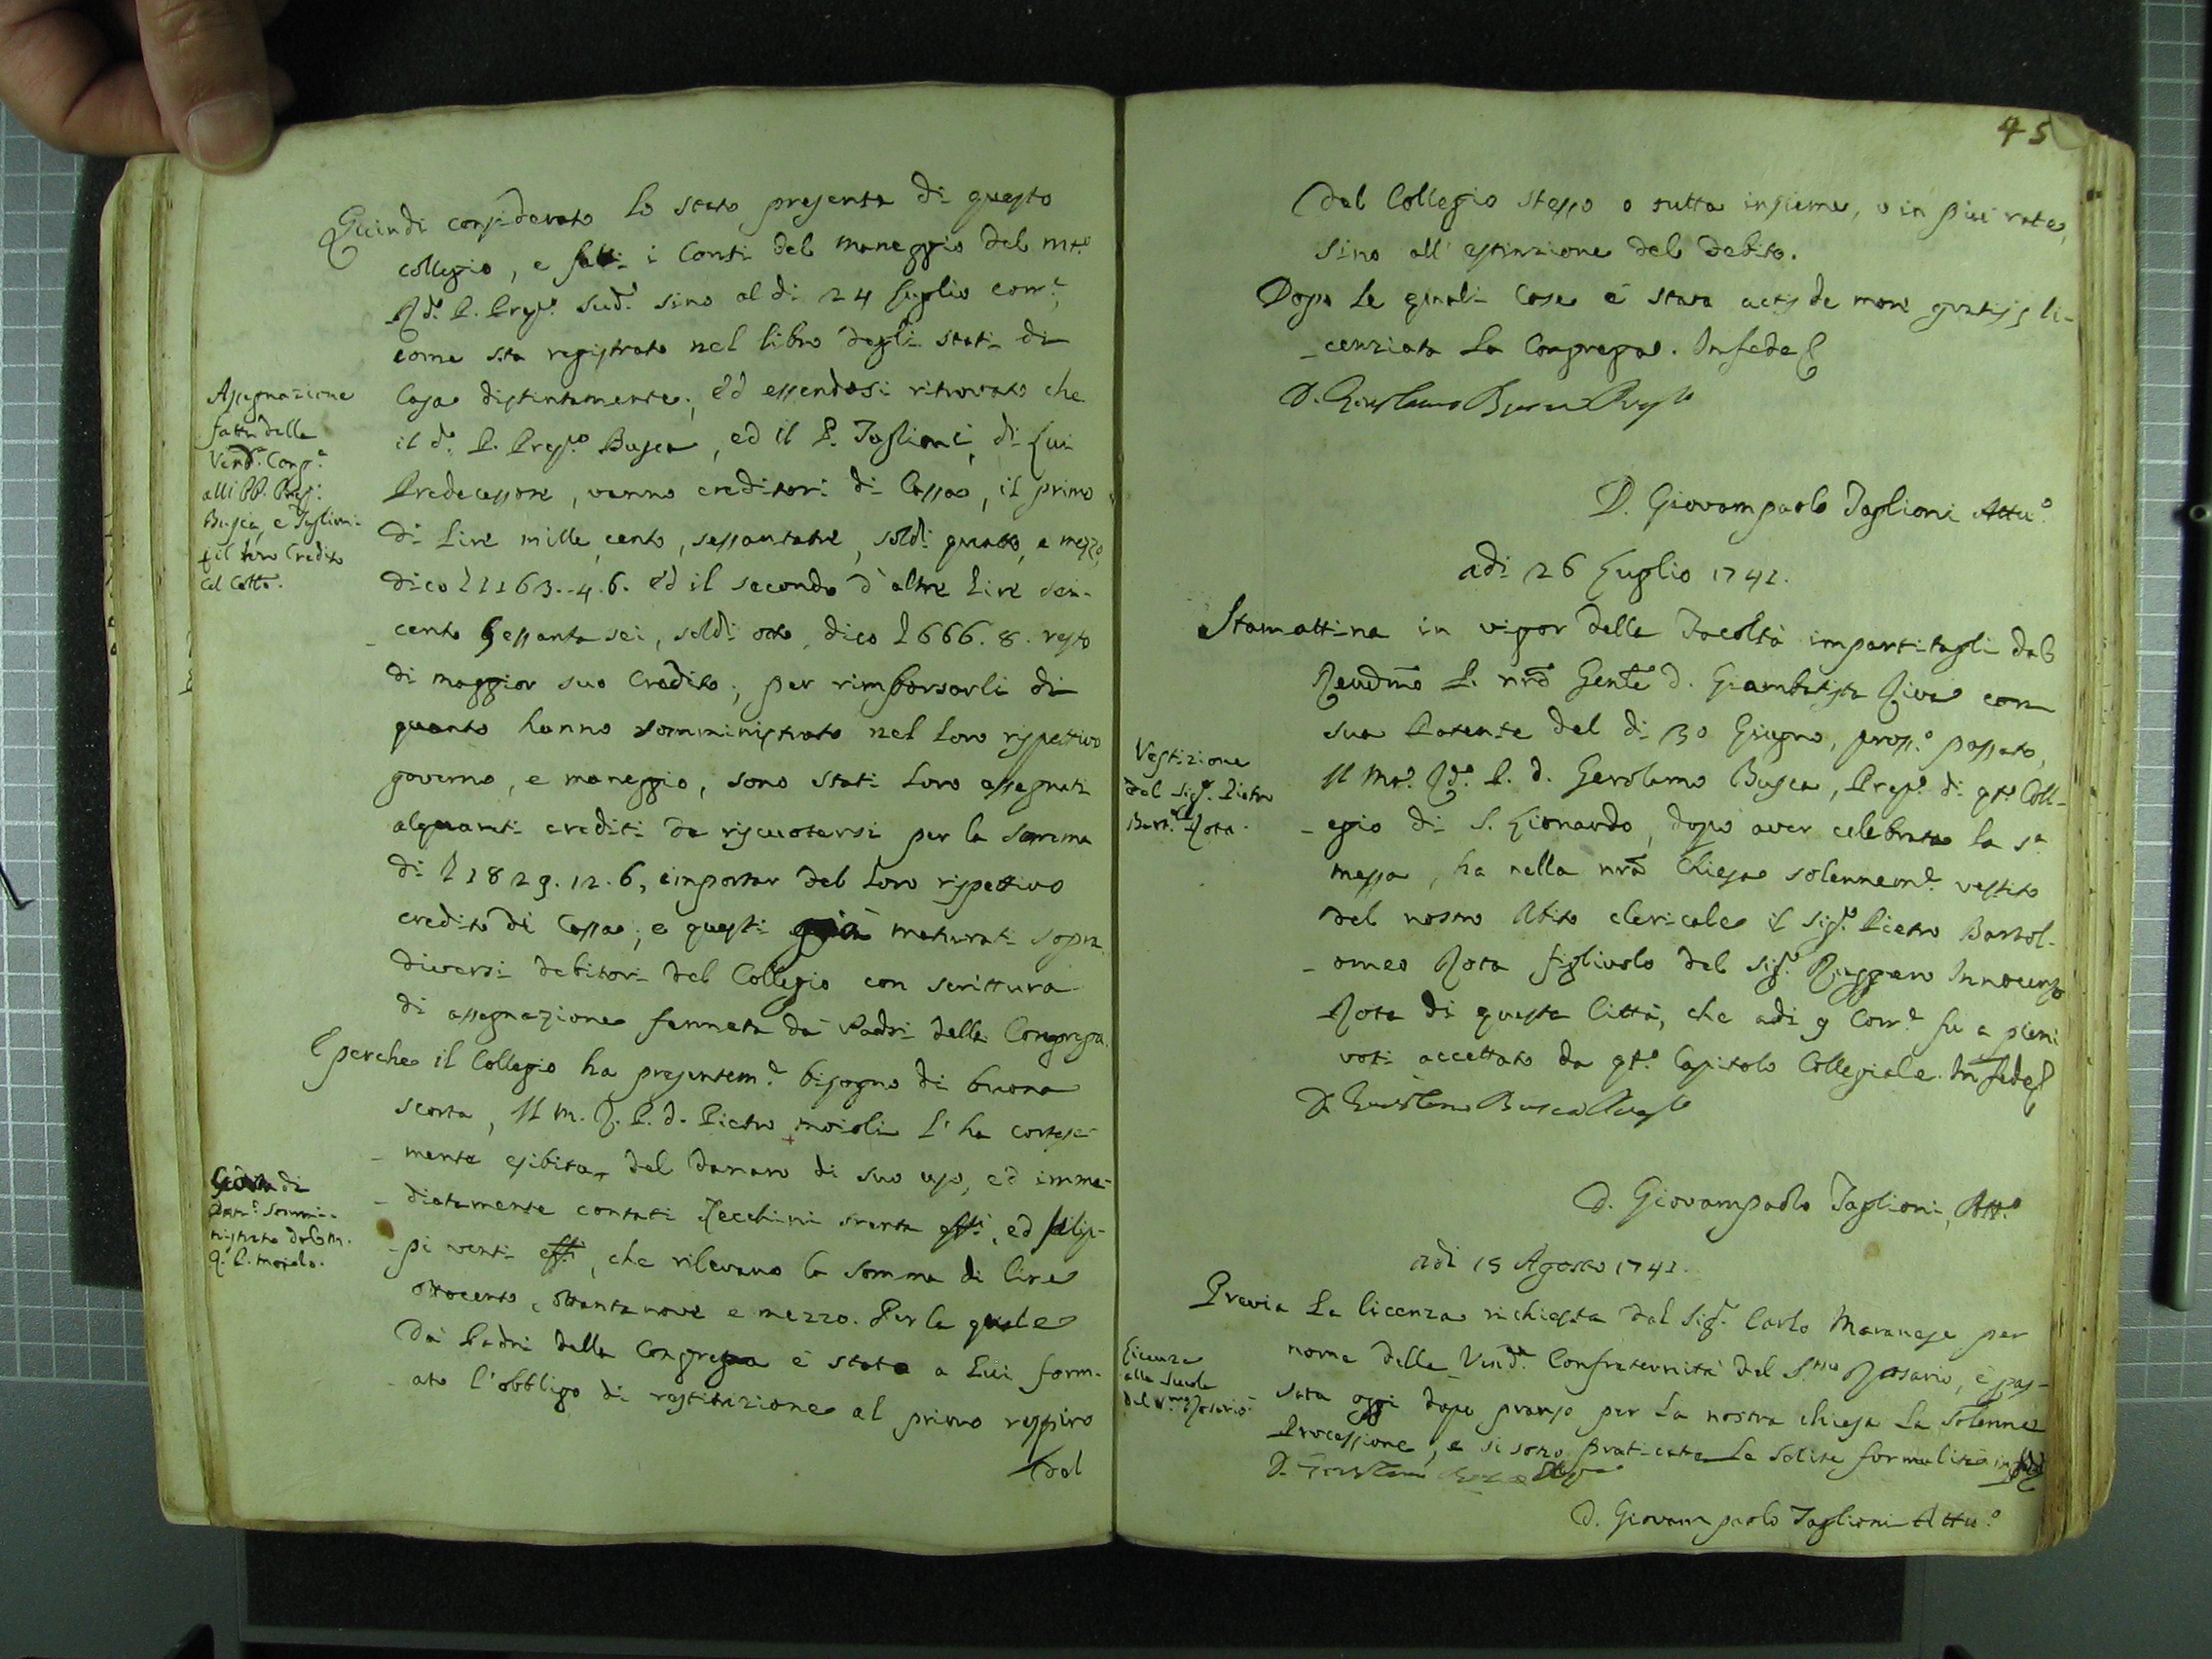 Quindi considerato lo stato presente di questo
collegio, e fatti i Conti del maneggio del mto
Rdo. P. Prepo. sudo. sino al di 24 luglio corre.
come sta registrato nel libro degli stati di
Casa distintamente; ed essendosi ritrovato che
il do. P. Prepo. Busca, ed il P. Taglioni, di lui
Predecessore, vanno creditori di Cassa, il primo
di Lire mille cento, sessantatre, soldi quatto, e mezzo
dico L 1163..4.6. ed il secondo d'altre Lire sei-
cento sessanta sei, soldi otto, dico L 666.8. resto
di maggior suo Credito; per rimborsarli di
quanto hanno somministrato nel loro rispettivo
governo, e maneggio, sono stati loro assegnati
alquanti crediti da riscuotersi per la somma
di L 1829.12.6, importar del loro rispettivo
credito di Cassa; e questi già maturati sopra
diversi debitori del Collegio con scrittura
di assegnazione fermata da Padri della Congrega.
E perche il Collegio ha presenteme. bisogno di buona
scorta, Il M. R. P. d. Pietro Moioli l'ha cortese-
mente esibita del danaro di suo uso, ed imme-
diatamente contati Zecchini trenta effi, ed filip-
pi venti effi, che rilevano la somma di lire
ottocento, ottantanove e mezzo. Per la quale
da Padri della Congrega è stato a lui form-
ato l'obbligo di restituzione al primo respiro
dal
Assegnazione
fatta della
Vend. Conge.
alli PP. Prep.
Busca, e Taglioni
pel loro Credito
col Collo.
di
Dane. sommi-
nistrata dal M.
R. P. Moiolo.
45
dal Collegio stesso o tutta insieme, o in più rate,
sino all'estinzione del debito.
Dopo le quali Cose è stata actis de more gratijs li-
cenziata la Congregae. In fede
D. Girolamo Busca Prepto
D. Giovampaolo Taglioni Attuo.
adi 26 Luglio 1742.
Stamattina in vigor delle Facoltà impartitegli dal
Reudmo P. nro Genle d. Giambatista Riva con
sua Patente del di 30 Giugno, prosso. passato,
Il Mo. Rdo. P. d. Gerolamo Busca, Prepo. di qto. Coll-
egio di S. Lionardo, dopo aver celebrata la sa
messa, ha nella nra Chiesa solenneme. vestito
del nostro Abito clericale il Sigr. Pietro Bartol-
omeo Rota figlivolo del sigr. Ruggero Innocenzo
Rota di questa Città, che adi 9 Corre. fu a pieni
voti accettato da qto. Capitolo Collegiale. In fede
D. Girolamo Busca Prepto
D. Giovampaolo Taglioni, Atto.
adi 15 Agosto 1742.
Previa la licenza richiesta dal Sigr. Carlo Maranese per
nome della Venda. Confraternità del Smo Rosario, è pas-
sata oggi dopo pranzo per la nostra chiesa la solenne
Processione, e si sono praticate le solite formalità in fede
D. Girolamo
D. Giovampaolo Taglioni Attuo.
Vestizione
del Sigr. Pietro
Bart. Rota.
Licenza
alla Scuola
del Rosario